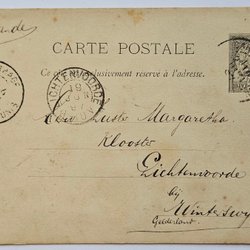 CARTE POSTALE
Ce côté exclusivement réservé à l'adresse.
LICHTENVOORDE
Zuster Margaretha
Klooster
Lichtenvoorde
bij
Winterswy
Gelderland